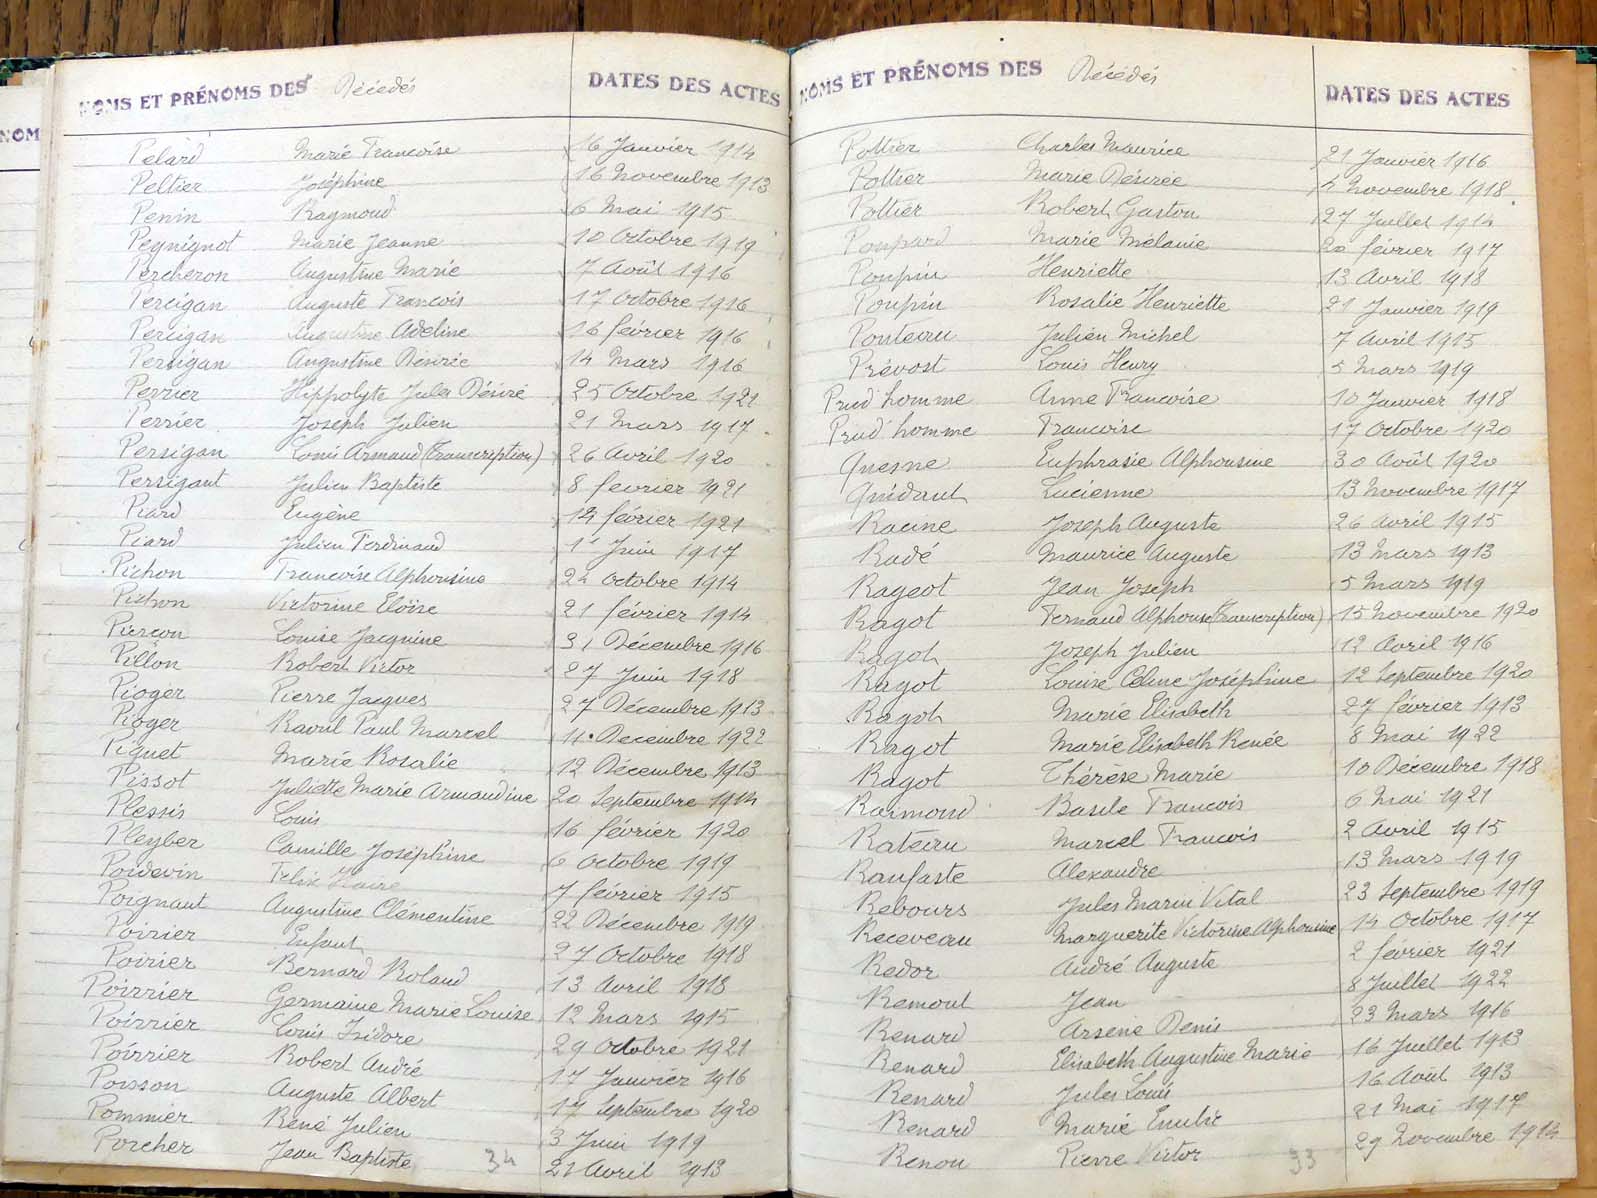 NOMS ET PRÉNOMS DES Décédés DATES DES ACTES
Pelard Marie Francoise 16 Janvier 1914
Peltier Joséphine 16 Novembre 1913
Penin Raymond 6 Mai 1915
Pegnignot Marie Jeanne 10 Octobre 1919
Percheron Augustine Marie 7 Août 1916
Percigan Auguste Francois 17 Octobre 1916
Percigan Augustine Adeline 16 février 1916
Persigan Augustine Désirée 14 Mars 1916
Perrier Hippolyte Jules Désiré 25 Octobre 1921
Perrier Joseph Julien 21 Mars 1917
Persigan Louis Armand (Transcription) 26 Avril 1920
Persigant Julien Baptiste 8 fevrier 1921
Piard Eugène février 1921
Piard Julien Ferdinand 1er Juin 1917
Pichon Francoise Alphonsine 24 Octobre 1914
Pichon Victorine Eloïse 21 février 1914
Piercon Louise Jacquine 31 Décembre 1916
Pillon Robert Victor 27 Juin 1918
Pioger Pierre Jacques 27 Décembre 1913
Pioger Raoul Paul Marcel 4 Decembre 1922
Piquet Marie Rosalie 12 Décembre 1913
Pissot Juliette Marie Armandine 20 Septembre 1914
Plessis Louis 16 février 1920
Pleyber Camille Joséphine 6 Octobre 1919
Poidevin Felix 7 février 1915
Poignant Augustine Clémentine 22 Décembre 1919
Poirier Enfant 27 Octobre 1918
Poirier Bernard Roland 13 Avril 1918
Poirrier Germaine Marie Louise 12 Mars 1915
Poirrier Louis Isidore 29 Octobre 1921
Poirrier Robert André 17 Janvier 1916
Poisson Auguste Albert 17 Septembre 1920
Pommier René Julien 3 Juin 1919
Porcher Jean Baptiste 21 Avril 1913
34
NOMS ET PRÉNOMS DES Décédés DATES DES ACTES
Pottier Charles Maurice 21 Janvier 1916
Pottier Marie Désirée 4 Novembre 1918
Pottier Robert Gaston 27 Juillet 1914
Poupard Marie Mélanie 20 février 1917
Poupin Henriette 13 Avril 1918
Poupin Rosalie Henriette 21 Janvier 1919
Pouteau Julien Michel 7 Avril 1915
Prévost Louis Henry 5 Mars 1919
Prud'homme Anne Francoise 10 Janvier 1918
Prud'homme Francoise 17 Octobre 1920
Quesne Euphrasie Alphonsine 30 Août 1920
Quidaut Lucienne 13 Novembre 1917
Racine Joseph Auguste 26 Avril 1915
Radé Maurice Auguste 13 Mars 1913
Rageot Jean Joseph 5 Mars 1919
Ragot Fernand Alphonse (Transcription) 15 Novembre 1920
Ragot Joseph Julien 12 Avril 1916
Ragot Louise Céline Joséphine 12 Septembre 1920
Ragot Marie Elisabeth 27 février 1913
Ragot Marie Elisabeth Renée 8 Mai 1922
Ragot Thérèse Marie 10 Décembre 1918
Raimond Basile Francois 6 Mai 1921
Rateau Marcel Francois 2 Avril 1915
Raufaste Alexandre 13 Mars 1919
Rebours Jules Marin Vital 23 Septembre 1919
Receveau Marguerite Victorine Alphonsine 14 Octobre 1917
Redor André Auguste 2 février 1921
Remout Jean 8 Juillet 1922
Renard Arsène Denis 23 Mars 1916
Renard Elisabeth Augustine Marie 16 Juillet 1913
Renard Jules Louis 16 Août 1913
Renard Marie Emilie 21 Mai 1917
Renou Pierre Victor 29 Novembre 1914
33